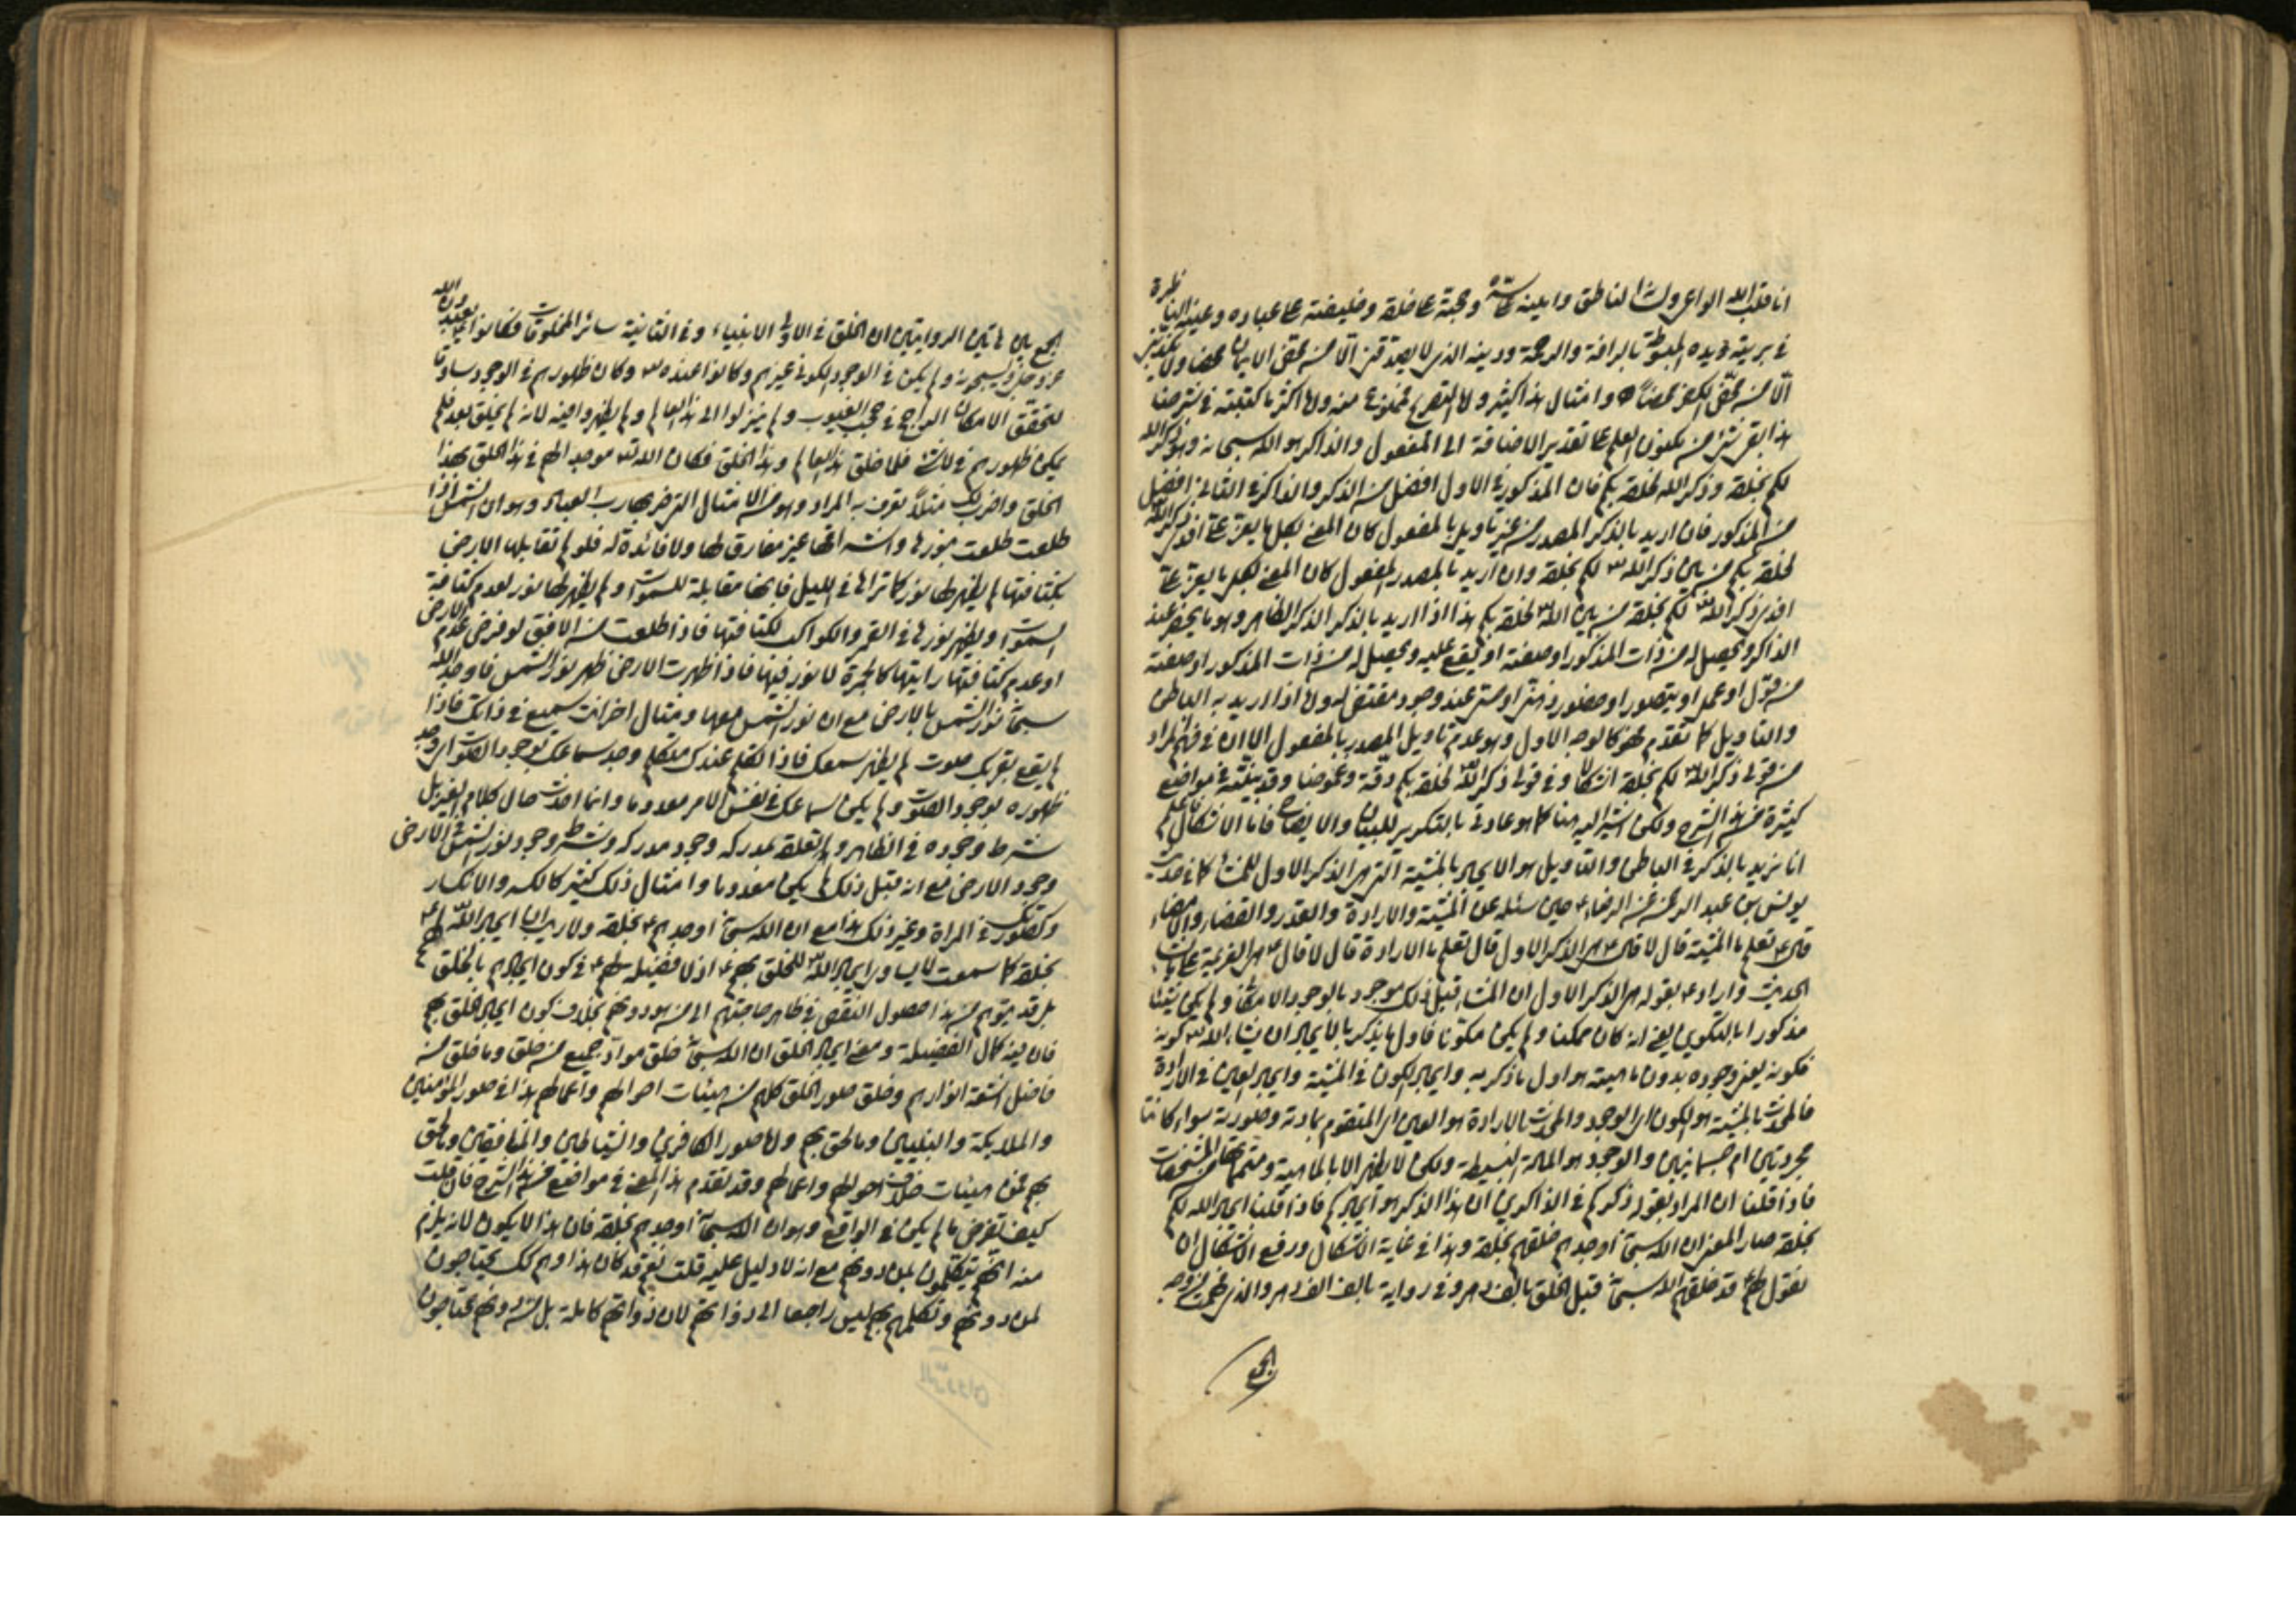 انا قلب الله الواعى ولسانه الناطق وامينه على سره وحجته على خلقه وخليفته على عباده وعينه الناظرة
فى بريته ويده المبسوطة بالرافة والرحمة ودينه الذى لا يصدقنى الا من محض الايمان محضا ولا يكذبنى
الا من محض الكفر محضا وامثال هذا كثير
هذا على تقدير الاضافة الى المفعول والذاكر هو الله سبحانه وهو ذكر الله
لكم بخلقه وذكر الله لخلقه بكم فان المذكور فى الاول افضل من الذكر والذاكر فى الثانى افضل
من المذكور فان اريد بالذكر المصدر من غير تاويل بالمفعول كان المعنى لكل ما يعز على افدى ذكر الله
لخلقه بكم من بين ذكر الله لكم بخلقه وان اريد بالمصدر المفعول كان المعنى لكل ما يعز على
افدى ذكر الله لكم بخلقه من بين الله لخلقه بكم هذا اذا اريد بالذكر الذكر الظاهر وهو ما يحضر عند
الذاكر ويحصل له من ذات المذكور او صفته او يقع عليه ويحصل له من ذات المذكور او صفته
من قول او عمل او يتصور او حضور ذهنى او حسى عند وجود مقتضى له ولها اذا اريد به الباطن
والتاويل كما تقدم فهو كالوجه الاول وهو عدم تاويل المصدر بالمفعول الا ان فى فهم المراد
من قولى ذكر الله لكم بخلقه اشكالا وفى قولى ذكر الله لخلقه بكم دقة وغموضا وقد بينته فى مواضع
كثيرة من هذا الشرح ولكن اشير اليه هنا كما هو عادتى بالتكرير للبيان والايضاح فاما الاشكال فاعلم
انا نريد بالذكر فى الباطن والتاويل هو الايجاد بالمشية التى هى الذكر الاول للمشاء كما فى حديث
يونس بن عبد الرحمن عن الرضا ع حين سئله عن المشية والارادة والقدر والقضاء والامضاء
قال ع تعلم ما المشية قال لا قال ع هى الذكر الاول قال تعلم ما الارادة قال لا قال ع هى العزيمة على ما يشاء
الحديث واراد ع بقوله هى الذكر الاول ان المشاء قبل ذلك موجود بالوجود الامكانى ولم يكن شيئا
مذكورا بالتكوين يعنى انه كان ممكنا ولم يكن مكونا فاول ما يذكر بالايجاد ان يشاء الله كونه
فكونه يعنى وجوده بدون ماهيته هو اول ما ذكر به وايجاد الكون فى المشية وايجاد العين فى الارادة
فالمحدث بالمشية هو الكون اى الوجود والمحدث بالارادة هو العين اى المتقوم بمادته وصورته سواء كانتا
مجردتين ام جسمانيتين والوجود هو المادة البسيطة ولكن لا يظهر الا بالماهية ومتمماتها من المشخصات
فاذا قلنا ان المراد بقوله ذكركم فى الذاكرين ان هذا الذكر هو ايجادكم فاذا قلنا ايجاد الله لكم
بخلقه صار المعنى ان الله سبحانه اوجدهم خلقهم بخلقه وهذا فى غاية الاشكال ورفع الاشكال ان
نقول انهم ع قد خلقهم الله سبحانه قبل الخلق بالف دهر وفى رواية بالف الف دهر والذى
الجمع
الجمع بين هاتين الروايتين ان الخلق فى الاولى الانبياء وفى الثانية سائر المخلوقات فكانوا يعبدون الله
عز وجل ويسبحونه ولم يكن فى الوجود الكونى غيرهم وكانوا عنده وكان ظهورهم فى الوجود مساوقا
للتحقق الامكانى الراجح فى حجب الغيوب ولم ينزلوا الى هذا العالم ولم يظهروا فيه لانه لم يخلق بعد فلم
يكن ظهورهم فى لا شىء فلما خلق هذا العالم وهذا الخلق فكان الله تعالى موجدا لهم فى هذا الخلق بهذا
الخلق واضرب لك مثلا تعرف به المراد وهو من الامثال التى ضربها رب العباد وهو ان الشمس اذا
طلعت طلعت بنورها واشراقها غير مفارق لها ولا فائدة له فلو لم تقابلها الارض
بكثافتها لم يظهر لها نور كما تراها فى الليل فانها مقابلة للسموات ولم يظهر لها نور لعدم كثافة
السموات ويظهر نورها فى القمر والكواكب لكثافتها فاذا طلعت من الافق لو فرض عدم الارض
او عدم كثافتها رايتها كالجمرة لا نور فيها فاذا ظهرت الارض ظهر نور الشمس فاوجد الله
سبحانه نور الشمس بالارض مع ان نور الشمس معها ومثال اخر انت سميع فى ذاتك فاذا
لم يقع بقربك صوت لم يظهر سمعك فاذا تكلم عندك متكلم وجد سماعك بوجود الصوت اى وجد
ظهوره بوجود الصوت ولم يكن سماعك فى نفس الامر معدوما وانما
شرط وجوده فى الظاهر والتعلق بمدركه وجود مدركه وشرط وجود نور الشمس فى الارض
وجود الارض مع انه قبل ذلك لم يكن معدوما وامثال ذلك كثير كالكسر والانكسار
وكصورتك فى المراة وغير ذلك هذا مع ان الله سبحانه اوجدهم ع بخلقه ولا ريب ان ايجاد الله لهم ع
بخلقه كما سمعت لا يساوى ايجاد الله للخلق بهم ع اذ لا فضيلة لهم ع فى كون ايجادهم بالخلق
بل قد يتوهم من هذا حصول النقص فى ظاهر حاجتهم الى من هو دونهم بخلاف كون ايجاد الخلق بهم
فان فيه كمال الفضيلة ومعنى ايجاد الخلق ان الله سبحانه خلق مواد جميع من خلق وما خلق من
فاضل اشعة انوارهم وخلق صور الخلق كلهم من هيئات احوالهم واعمالهم هذا فى صور المؤمنين
والملائكة والنبيين وما لحق بهم واما صور الكافرين والشياطين والمنافقين وما لحق
بهم فمن هيئات خلاف احوالهم واعمالهم وقد تقدم هذا المعنى فى مواضع من هذا الشرح فان قلت
كيف تفرض ما لم يكن فى الواقع وهو ان الله سبحانه اوجدهم بخلقه فان هذا لا يكون لانه يلزم
منه انهم يتكملون بمن دونهم مع انه لا دليل عليه قلت نعم قد كان هذا وهم كذلك يحتاجون
لمن دونهم وتكملهم بهم ليس راجعا الى ذواتهم لان ذواتهم كاملة بل من دونهم يحتاجون